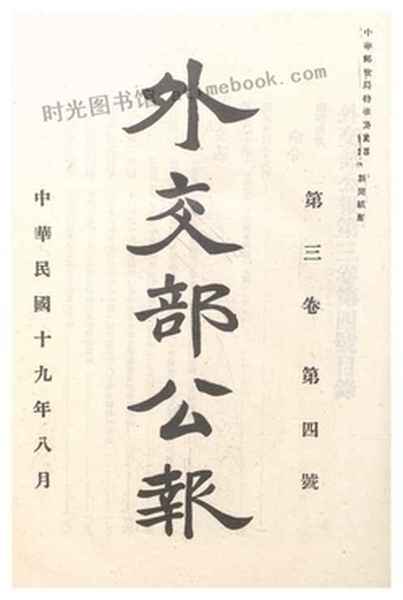 中華郵政局特准掛號認
新聞紙類
第三卷第四號
外交部公報
中華民國十九年八月
时光图书馆